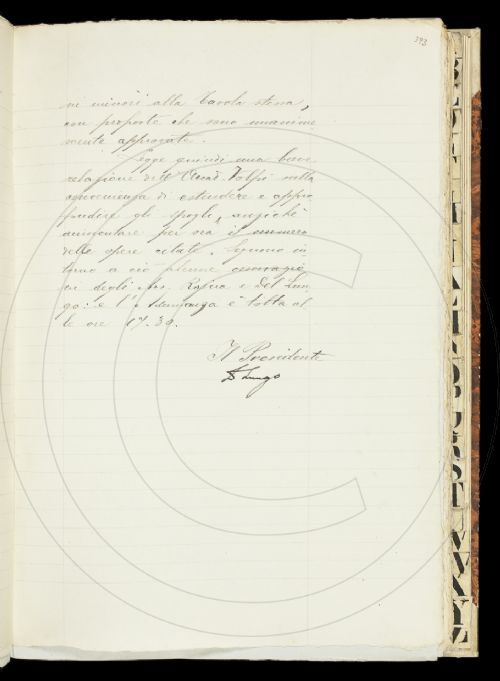 393
ni minori alla Tavola stessa,
con proposte che sono unanime
mente approvate.
Legge quindi una breve
relazione dell'Accad. Volpi sulla
convenienza di estendere e appro
fondire gli spogli, anziché
aumentare per ora il numero
delle opere citate. Seguono in-
torno a ciò alcune
ni degli Acc. Rajna e Del Lun
go: e l'Adunanza è tolta al
le ore 17.30.
Il Presidente
D Lungo